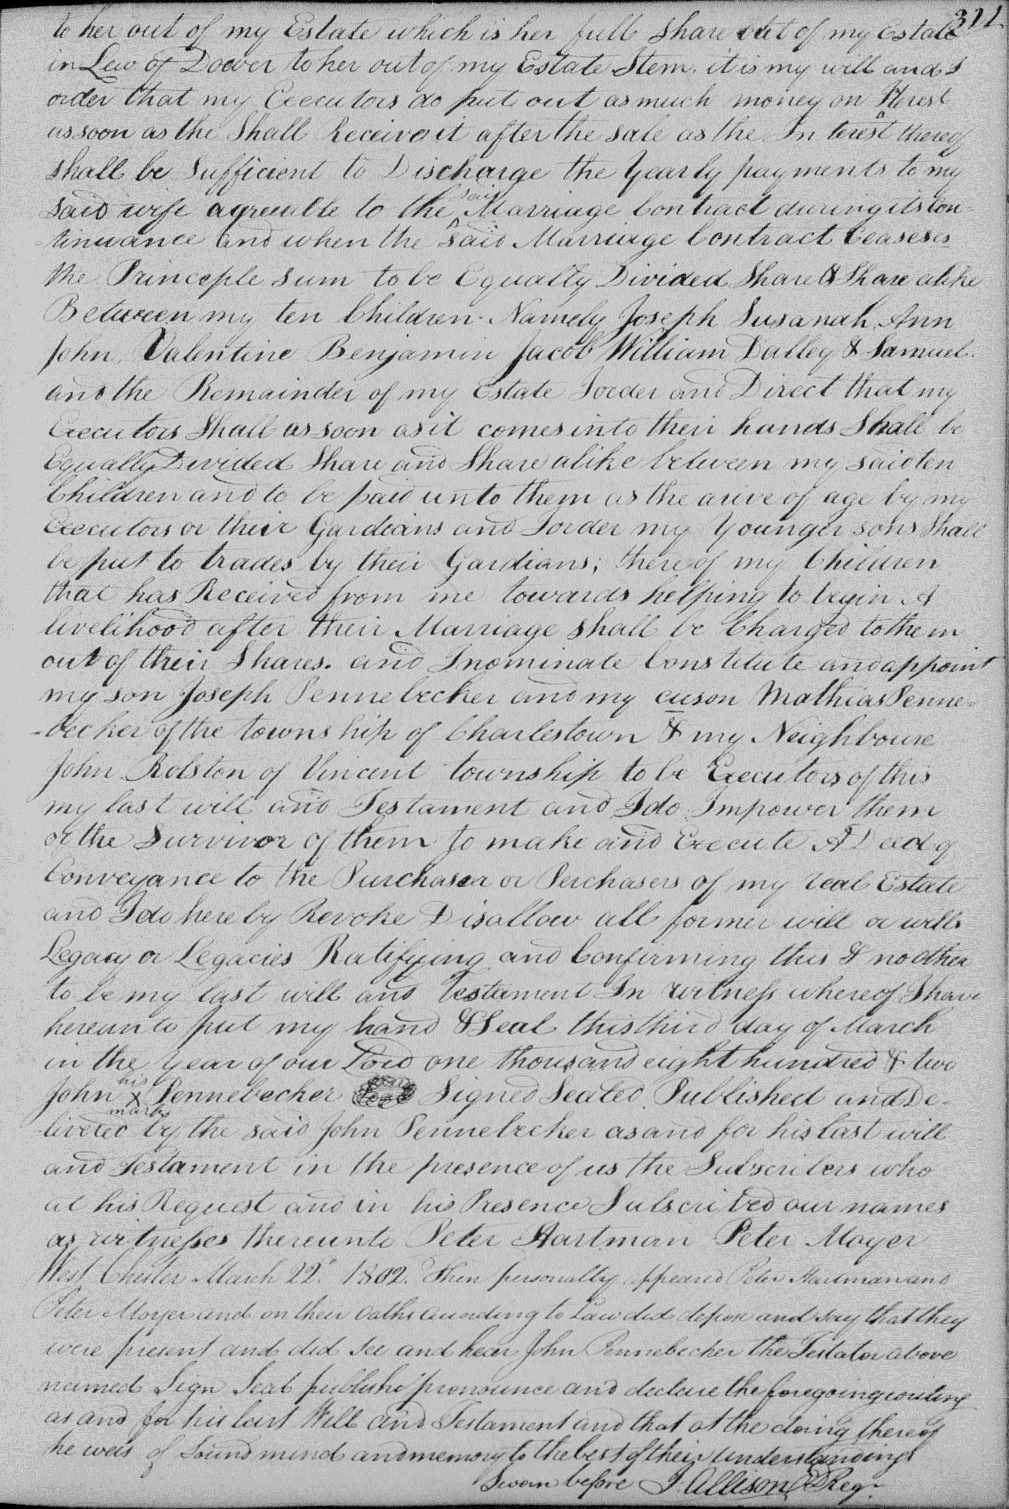 311
to her out of my Estate which is her full Share out of my Estate
in Law of Dower to her out of my Estate Item. it is my will and I
order that my Executors do put out as much money on Iterest
as soon as the Shall Receive it after the sale as the Interest thereof
shall be Sufficient to Discharge the Yearly payments to my
Said wife agreeable to the said Marriage Contract during its Con-
-tinuance and when the said Marriage Contract Ceaseses
the Principle sum to be Equally Divided Share & Share alike
Between my ten Children Namely Joseph Susanah Ann
John Valentine Benjamin Jacob William Dalley & Samuel.
and the Remainder of my Estate I order and Direct that my
Executors Shall as soon as it comes into their hands Shall be
Equally Divided Share and Share alike between my said ten
Children and to be paid unto them as the arive of age by my
Executors or their Gardians and I order my Younger sons Shall
be put to trades by their Gardians; there of my Children
that has Received from me towards helping to begin A
livelihood after their Marriage shall be Charged to them
out of their Shares. and I nominate Constitute and appoint
my son Joseph Pennebecker and my cuson Mathias Penne-
-becker of the township of Charlestown & my Neighboure
John Rolston of Vincent township to be Executors of this
my last will and Testament and I do Impower them
or the Survivor of them to make and Execute A Deed of
Conveyance to the Purchaser or Perchasers of my real Estate
and I do hereby Revoke Disallow all former will or wills
Legacy or Legacies Ratifying and Confirming this & no other
to be my last will and testament In Witness whereof I have
hereunto put my hand & Seal this third day of March
in the year of our Lord one thousand eight hundred & two
John his X mark Pennebecker Seal Signed Sealed Published and De-
-livered by the said John Pennebecker as and for his last will
and Testament in the presence of us the Subscribers who
at his Request and in his Presence Subscribed our names
as witnesses thereunto Peter Hartman Peter Moyer
West Chester March 22d 1802. Then personally appeared Peter Hartman and
Peter Moyer and on their oaths according to Law did depose and say that they
were present and did see and hear John Pennebecker the Testator above
named Sign Seal publish pronounce and declare the foregoing writing
as and for his last Will and Testament and that at the doing thereof
he was of sound mind and memory to the best of their understandings
Sworn before J. Allison Reg.